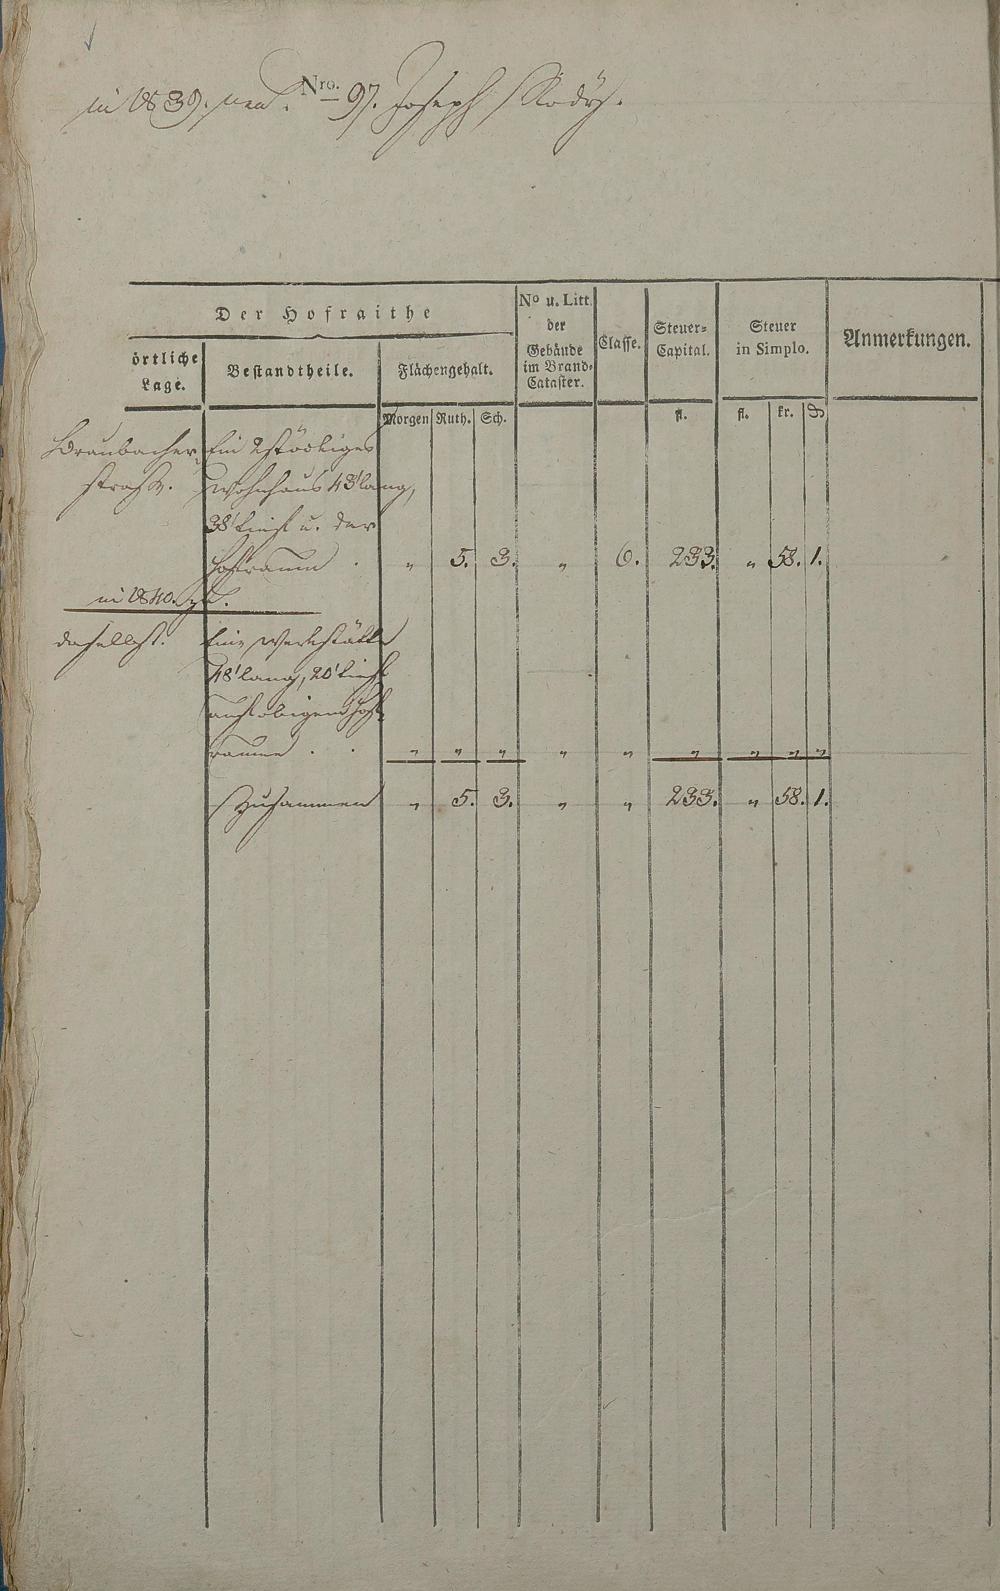 in 1839. neu. Nro. 97. Joseph
Der Hofraithe
örtliche Lage.
Bestandtheile.
Flächengehalt.
No u. Litt. der Gebäude im Brand-Cataster.
Classe.
Steuer-Capital.
Steuer in Simplo.
Anmerkungen.
Morgen Ruth. Sch. fl. fl. kr. ₰
Braubacher- Ein 2stöckiges
straße. Wohnhaus 48' lang,
38' tief u. der
Hofraum . „ 5. 3. „ 6. 233. „ 58. 1.
in 1840. zu.
daselbst. Eine Werkstätte
48' lang, 20' tief
auf obigem Hof-
raume . . „ „ „ „ „ „ „ „ „
Zusammen „ 5. 3. „ „ 233. „ 58. 1.